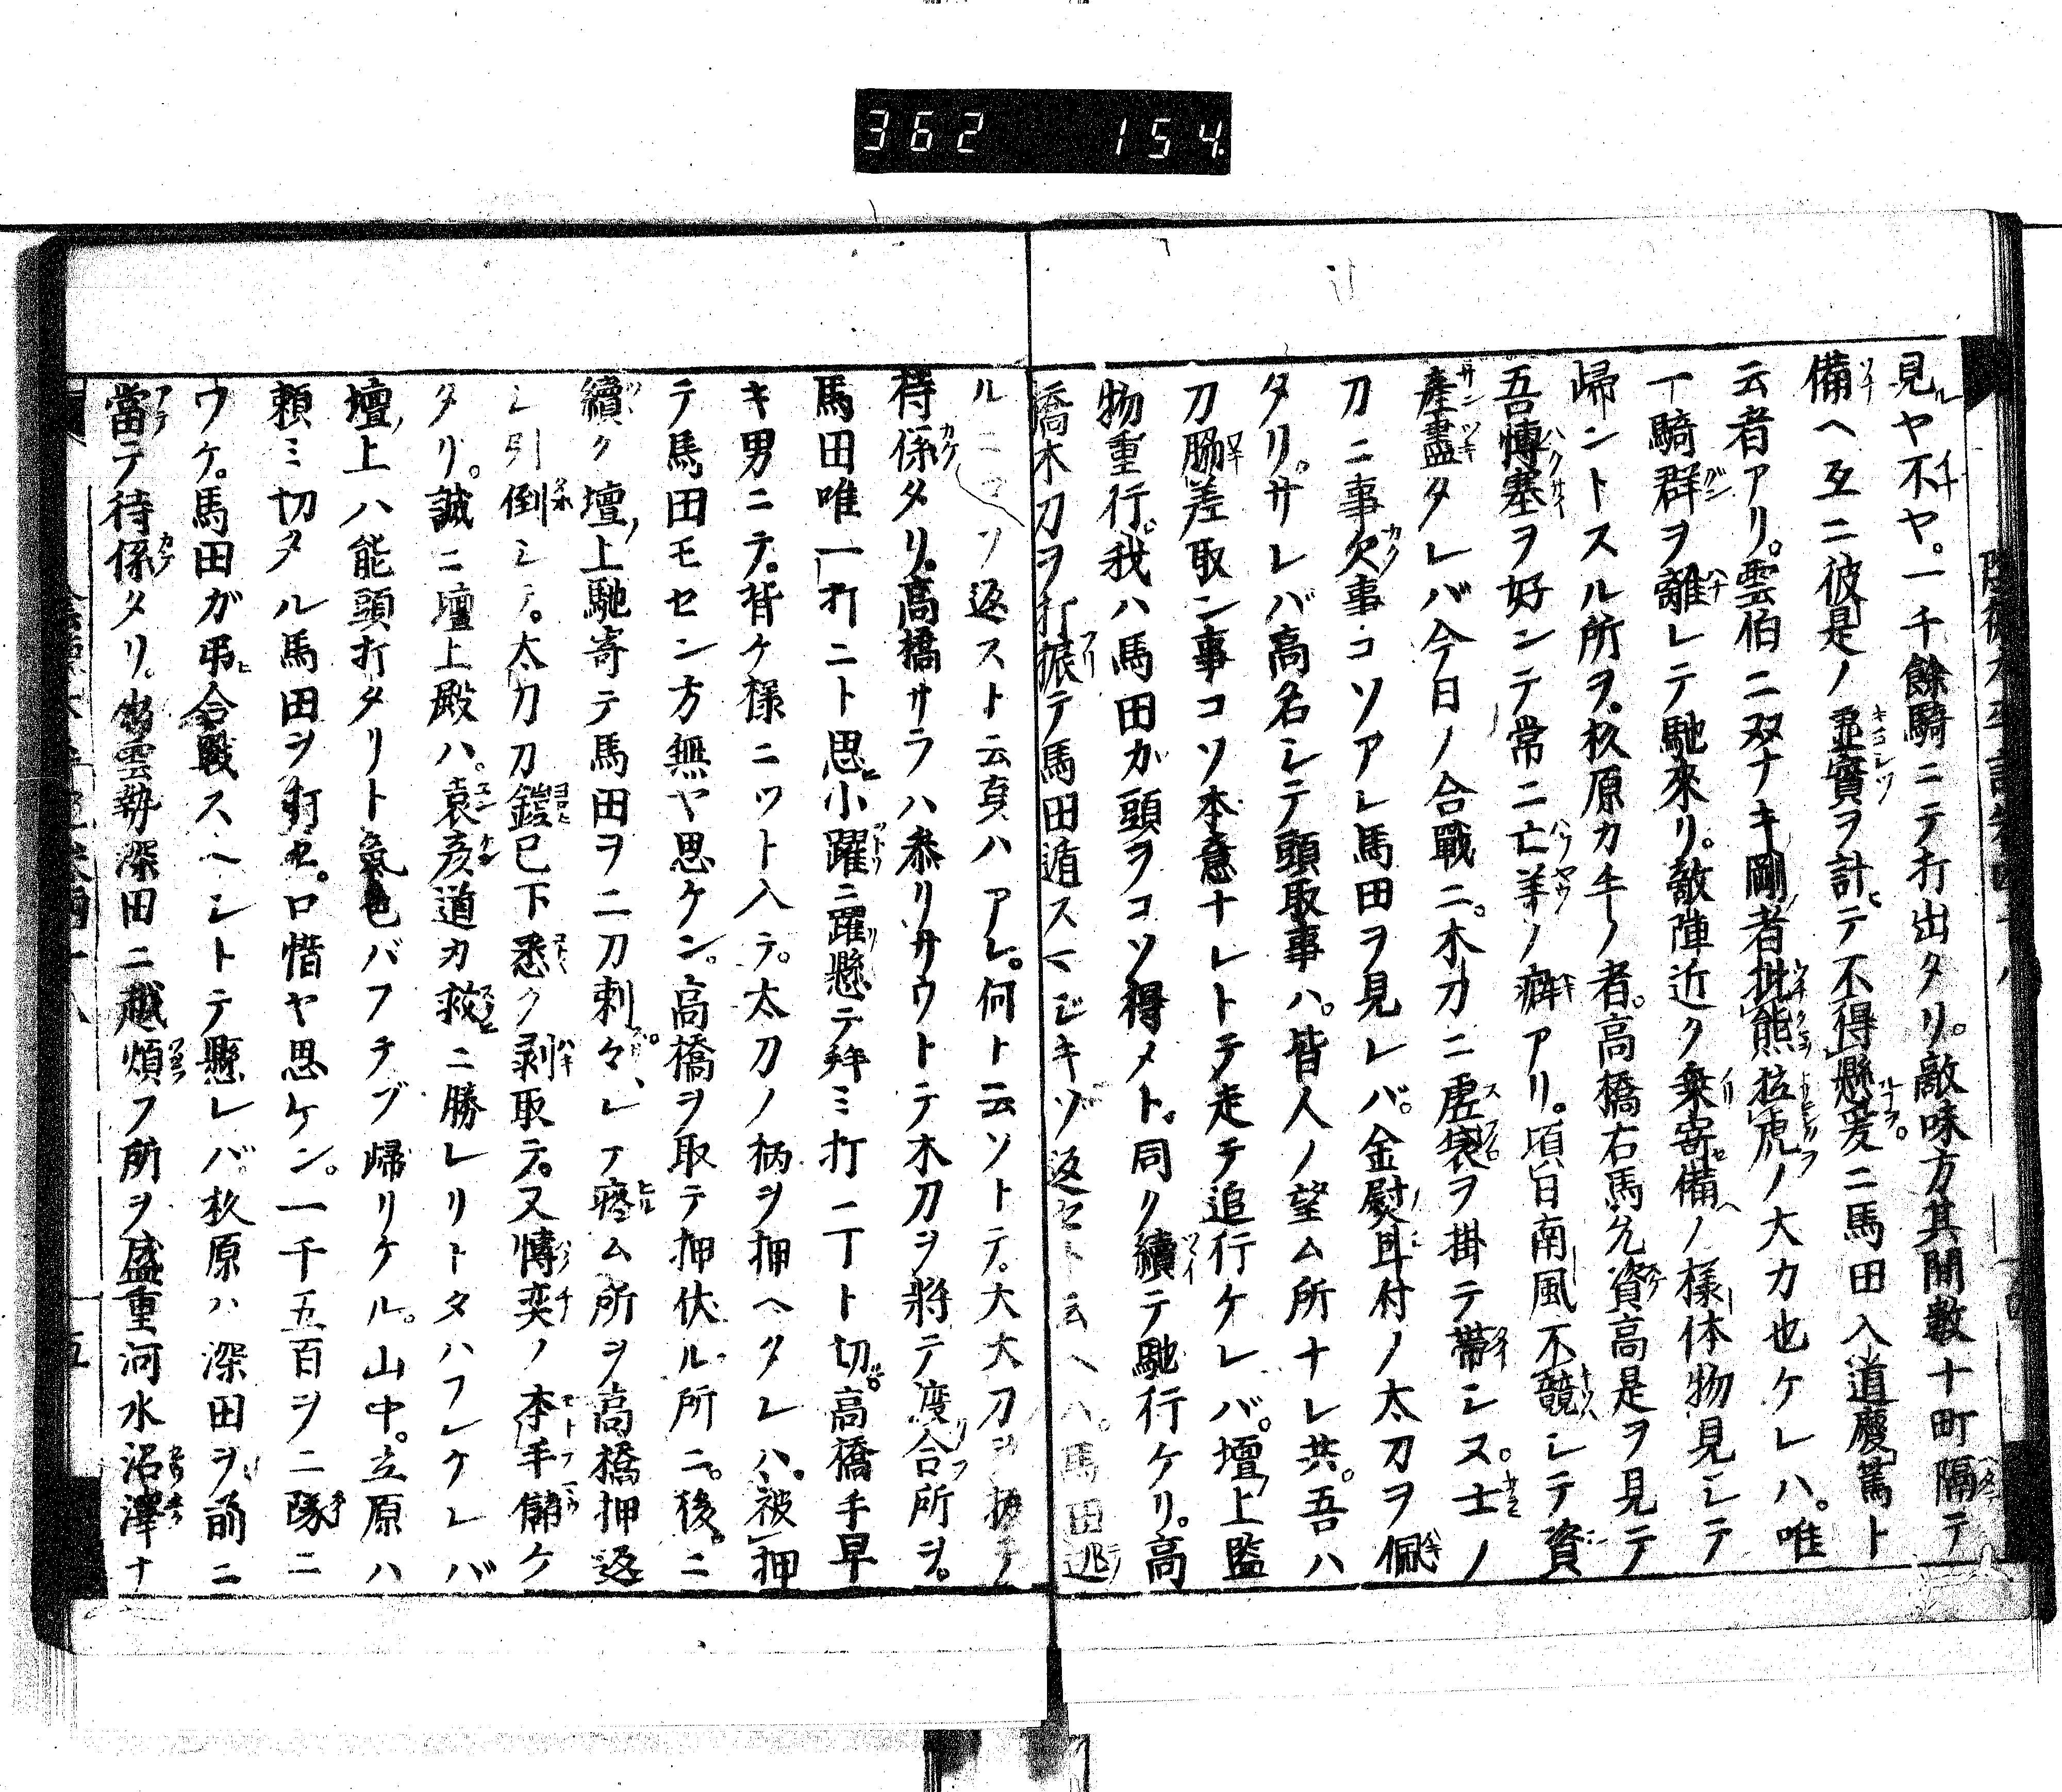 362 154
見ヤ不ヤ。一千餘騎ニテ打出タリ。敵味方其間數十町隔テ
備ヘ互ニ彼是ノ虛實ヲ計テ不得懸爰ニ馬田入道慶篤ト
云者アリ。雲伯ニ双ナキ剛者批熊拉虎ノ大力也ケレハ。唯
一騎群ヲ離レテ馳來リ。敵陣近ク乗寄備ノ樣体物見シテ
歸ントスル所ヲ。杦原カ手ノ者。高橋右馬允資高是ヲ見テ
吾博塞ヲ好ンテ常ニ亡羊ノ癖アリ。頃日南風不競シテ資
產盡タレバ今日ノ合戰ニ。木刀ニ虛袋ヲ掛テ帶シヌ。士ノ
刀ニ事欠事コソアレ馬田ヲ見レバ。金熨耳付ノ太刀ヲ佩
タリ。サレバ高名シテ頭取事ハ。皆人ノ望ム所ナレ共。吾ハ
刀脇差取ン事コソ本意ナレトテ走チ追行ケレバ。壇上監
物重行。我ハ馬田ガ頭ヲコソ得メト。同ク續テ馳行ケリ。高
橋木刀ヲ打振テ馬田遁スマジキゾ返セト云ヘハ。馬田逃
ルニコソ返スト云夏ハアレ。何ト云ソトテ。大太刀ヲ拔テ
待係タリ。高橋サラハ参リサウトテ木刀ヲ將テ度合所ヲ。
馬田唯一打ニト思小躍ニ躍懸テ拜ミ打ニ丁ト切。高橋手早
キ男ニテ。背ケ樣ニツト入テ。太刀ノ柄ヲ押ヘタレハ。被押
テ馬田モセン方無ヤ思ケン。高橋ヲ取テ押伏ル所ニ。後ニ
續ク壇上馳寄テ馬田ヲ二刀刺。々レテ疼ム所ヲ高橋押返
シ引倒シテ。太刀刀鎧已下悉ク剥取テ。又博奕ノ本手儲ケ
タリ。誠ニ壇上殿ハ。袁彦道カ救ニ勝レリトタハフレケレバ
壇上ハ能頭打タリト氣色バフテゾ歸リケル。山中。立原ハ
頼ミ切タル馬田ヲ打セ。口惜ヤ思ケン。一千五百ヲ二隊ニ
ワケ。馬田ガ弔合戰スヘシトテ懸レバ。杦原ハ深田ヲ前ニ
當テ待係タリ。雲勢深田ニ越煩フ所ヲ盛重河水沼澤ナ